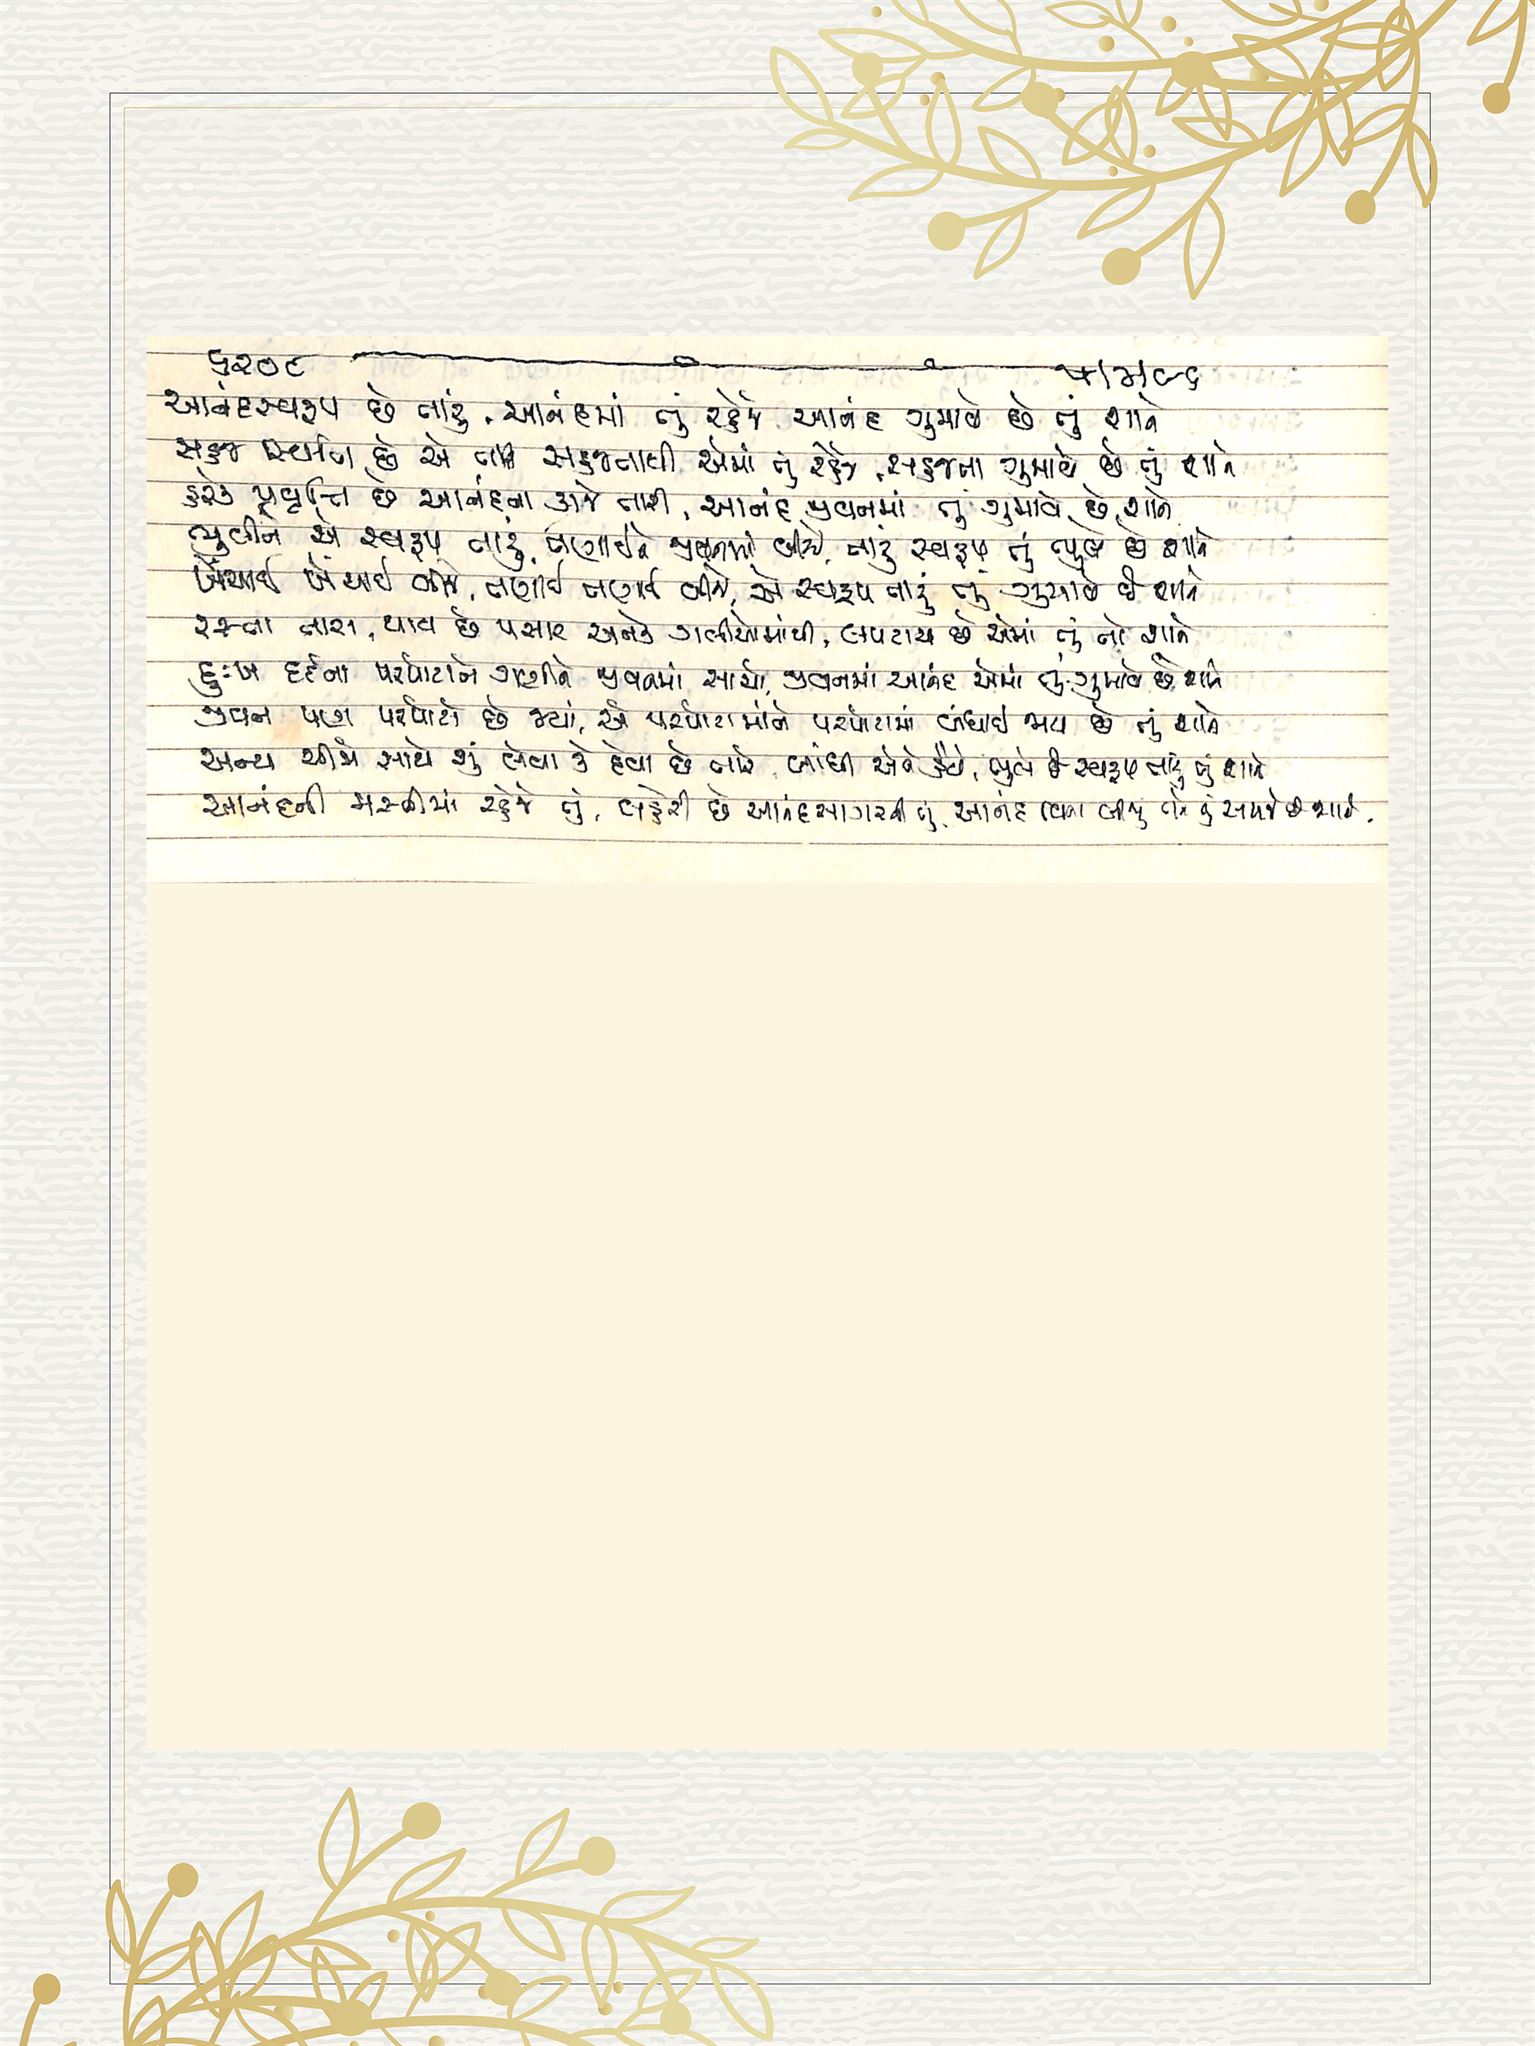 ૬૨૦૯
આનંદસ્વરૂપ છે તારું, આનંદમાં તું રહેજે આનંદ ગુમાવે છે તું શાને
સહજ સ્થિતિ છે એ તારી સહજતાથી એમાં તું રહેજે, સહજતા ગુમાવે છે તું શાને
હરેક પ્રવૃત્તિ છે આનંદના કાજે તારી, આનંદ જીવનમાં તું ગુમાવે છે શાને
ભુલીને એ સ્વરૂપ તારું, તણાઈને જીવનમાં બીજે, તારું સ્વરૂપ તું ભુલે છે શાને
ખેંચાઈ ખેંચાઈ બીજે, તણાઈ તણાઈ બીજે, એ સ્વરૂપ તારું તું ગુમાવે છે શાને
રસ્તા તારા, થાય છે પસાર અનેક ગલીઓમાંથી, લપટાય છે એમાં તું તો શાને
દુઃખ દર્દના પરપોટાને ગણીને જીવનમાં સાચા, જીવનમાં આનંદ એમાં તું ગુમાવે છે શાને
જીવન પણ પરપોટો છે જ્યાં, એ પરપોટામાંને પરપોટામાં બંધાઈ જાય છે તું શાને
અન્ય ચીજો સાથે શું લેવા કે દેવા છે તારે, બાંધી એને હૈયે, ભુલે છે સ્વરૂપ તારું તું શાને
આનંદની મસ્તીમાં રહેજે તું, લહેરી છે આનંદસાગરની તું, આનંદ વિના બીજું તને તું સમજે છે શાને.